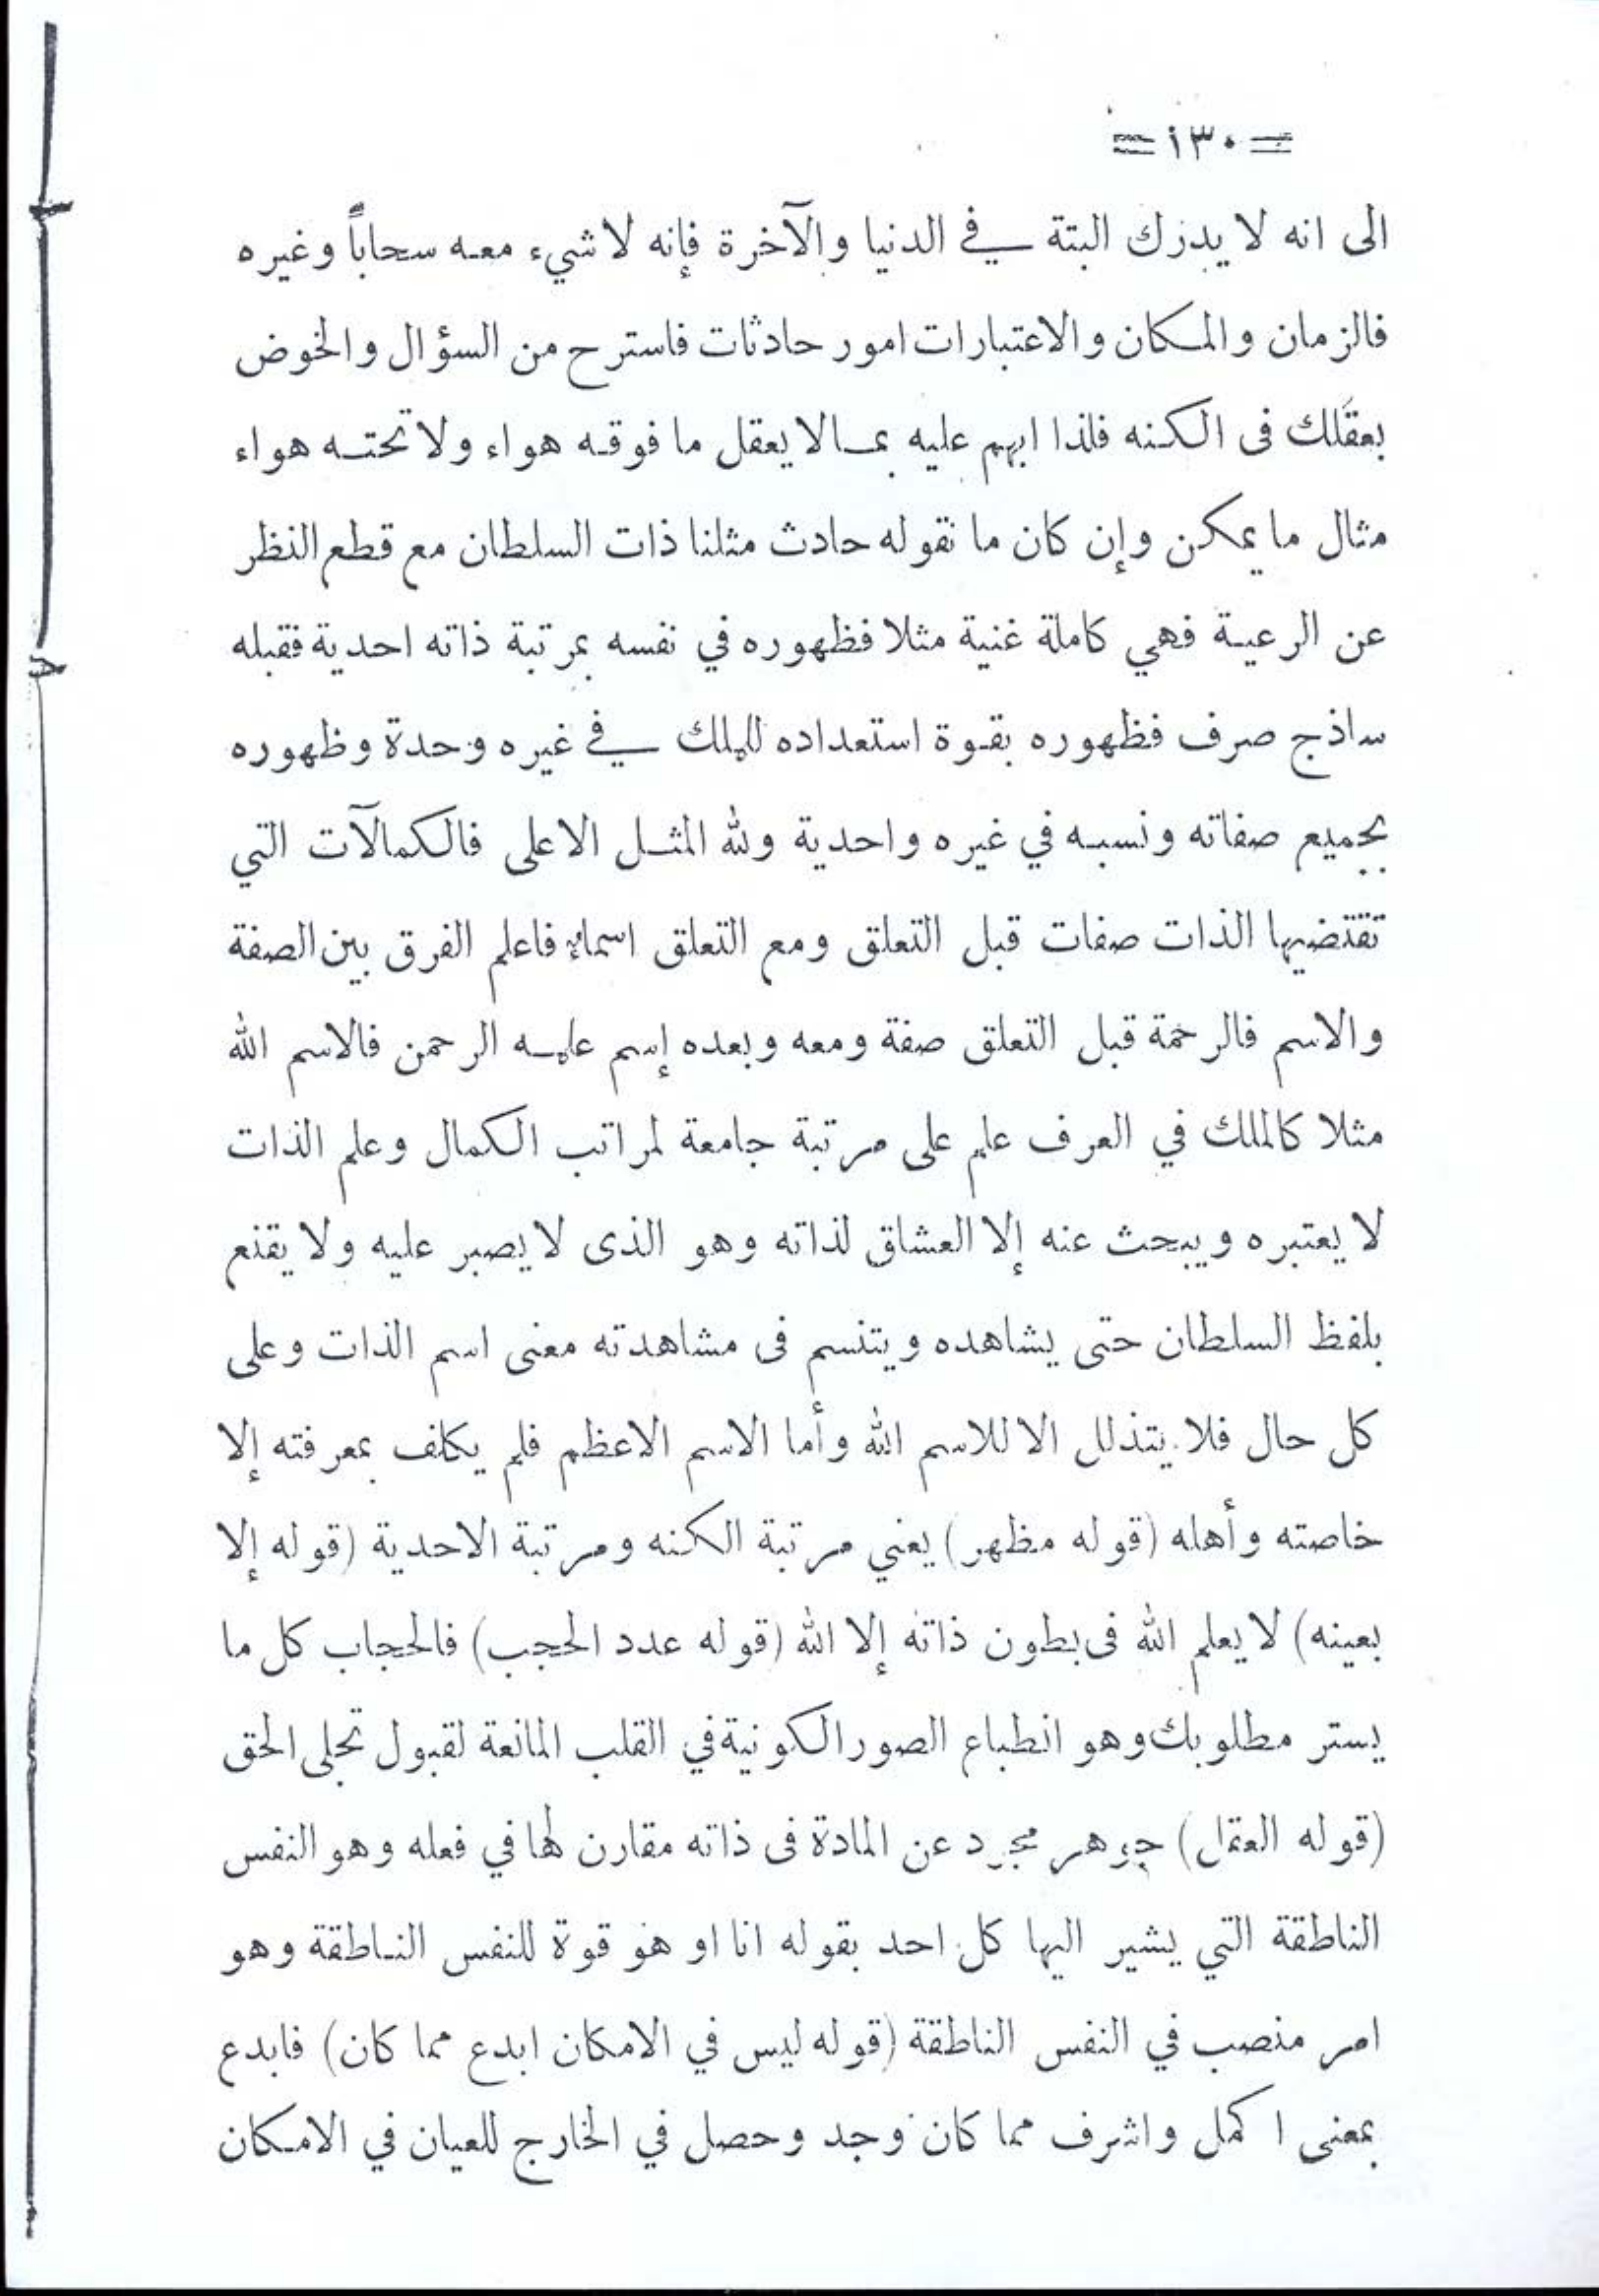 = ١٣٠ =
الى انه لا يدرك البتة في الدنيا والآخرة فإنه لا شيء معه سحاباً وغيره
فالزمان والمكان والاعتبارات امور حادثات فاسترح من السؤال والخوض
بعقلك فى الكنه فلذا ابهم عليه بما لا يعقل ما فوقه هواء ولا تحته هواء
مثال ما يمكن وإن كان ما نقوله حادث مثلنا ذات السلطان مع قطع النظر
عن الرعية فهي كاملة غنية مثلا فظهوره في نفسه بمرتبة ذاته احدية فقبله
ساذج صرف فظهوره بقوة استعداده للملك في غيره وحدة وظهوره
بجميع صفاته ونسبه في غيره واحدية ولله المثل الاعلى فالكمالآت التي
تقتضيها الذات صفات قبل التعلق ومع التعلق اسماء فاعلم الفرق بين الصفة
والاسم فالرحمة قبل التعلق صفة ومعه وبعده إسم عليه الرحمن فالاسم الله
مثلا كالملك في العرف علم على مرتبة جامعة لمراتب الكمال وعلم الذات
لا يعتبره ويبحث عنه إلا العشاق لذاته وهو الذى لا يصبر عليه ولا يقنع
بلفظ السلطان حتى يشاهده ويتنسم فى مشاهدته معنى اسم الذات وعلى
كل حال فلا يتذلل الا للاسم الله وأما الاسم الاعظم فلم يكلف بمعرفته إلا
خاصته وأهله (قوله مظهر) يعني مرتبة الكنه ومرتبة الاحدية (قوله إلا
بعينه) لا يعلم الله فى بطون ذاته إلا الله (قوله عدد الحجب) فالحجاب كل ما
يستر مطلوبك وهو انطباع الصور الكونية في القلب المانعة لقبول تجلى الحق
(قوله العقل) جوهر مجرد عن المادة فى ذاته مقارن لها في فعله وهو النفس
الناطقة التي يشير اليها كل احد بقوله انا او هو قوة للنفس الناطقة وهو
امر منصب في النفس الناطقة (قوله ليس في الامكان ابدع مما كان) فابدع
بمعنى اكمل واشرف مما كان وجد وحصل في الخارج للعيان في الامكان